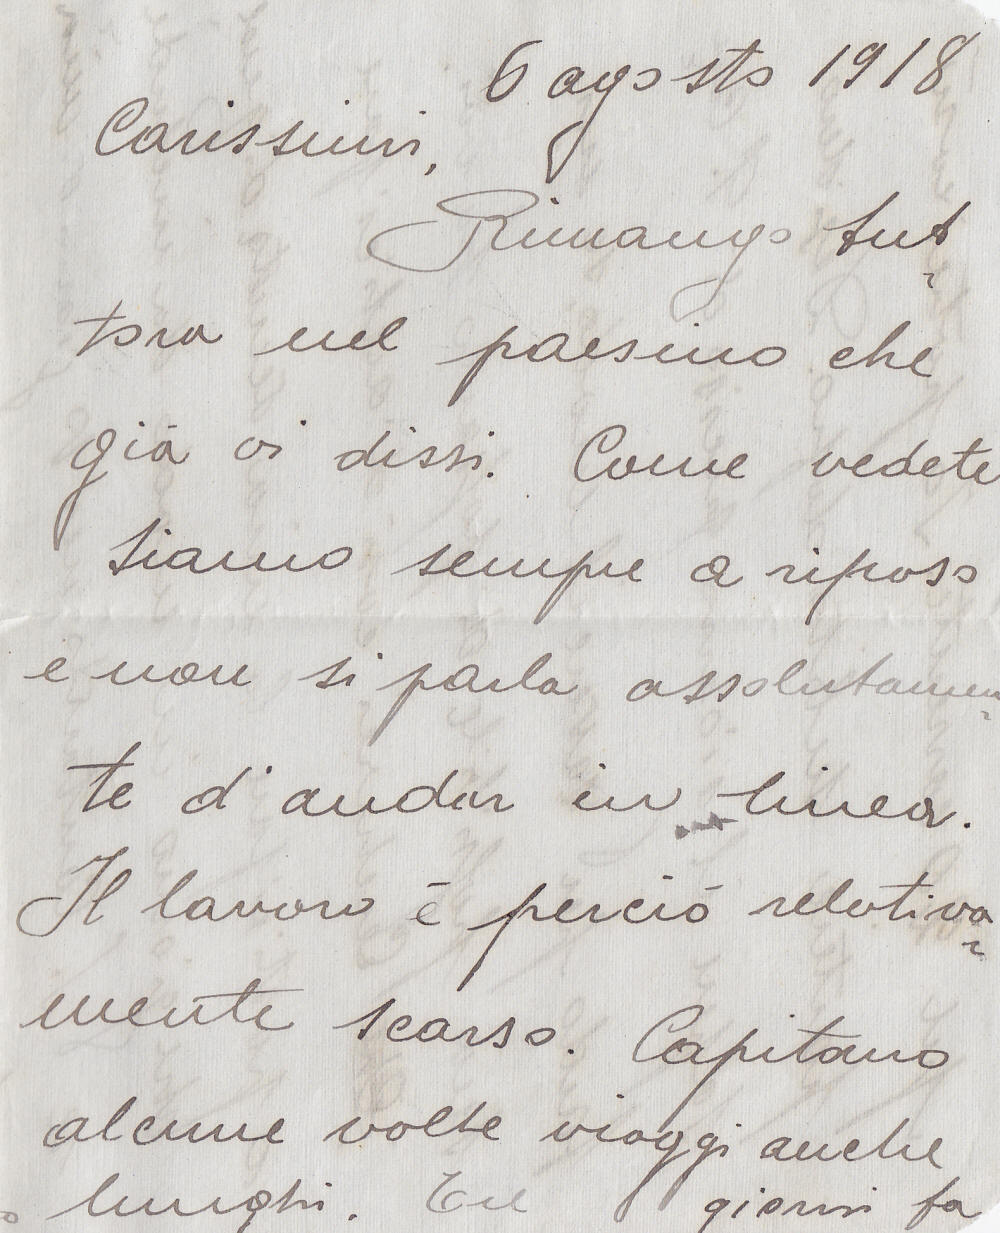 6 agosto 1918
Carissimi,
Rimango tut-
tora nel paesino che
già vi dissi. Come vedete
siamo sempre a riposo
e non si parla assolutamen-
te d'andar in linea.
Il lavoro è perciò relativa-
mente scarso. Capitano
alcune volte viaggi anche
lunghi. giorni fa